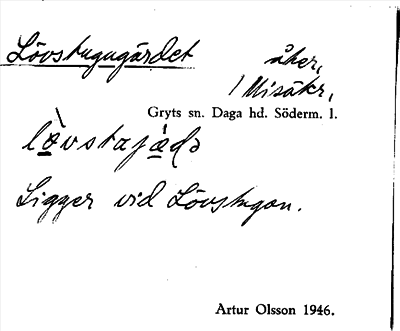 Lövstugugärdet åker,
1 Misåkr,
Gryts sn. Daga hd. Söderm. l.
Ligger vid Lövstugan.
Artur Olsson 1946.